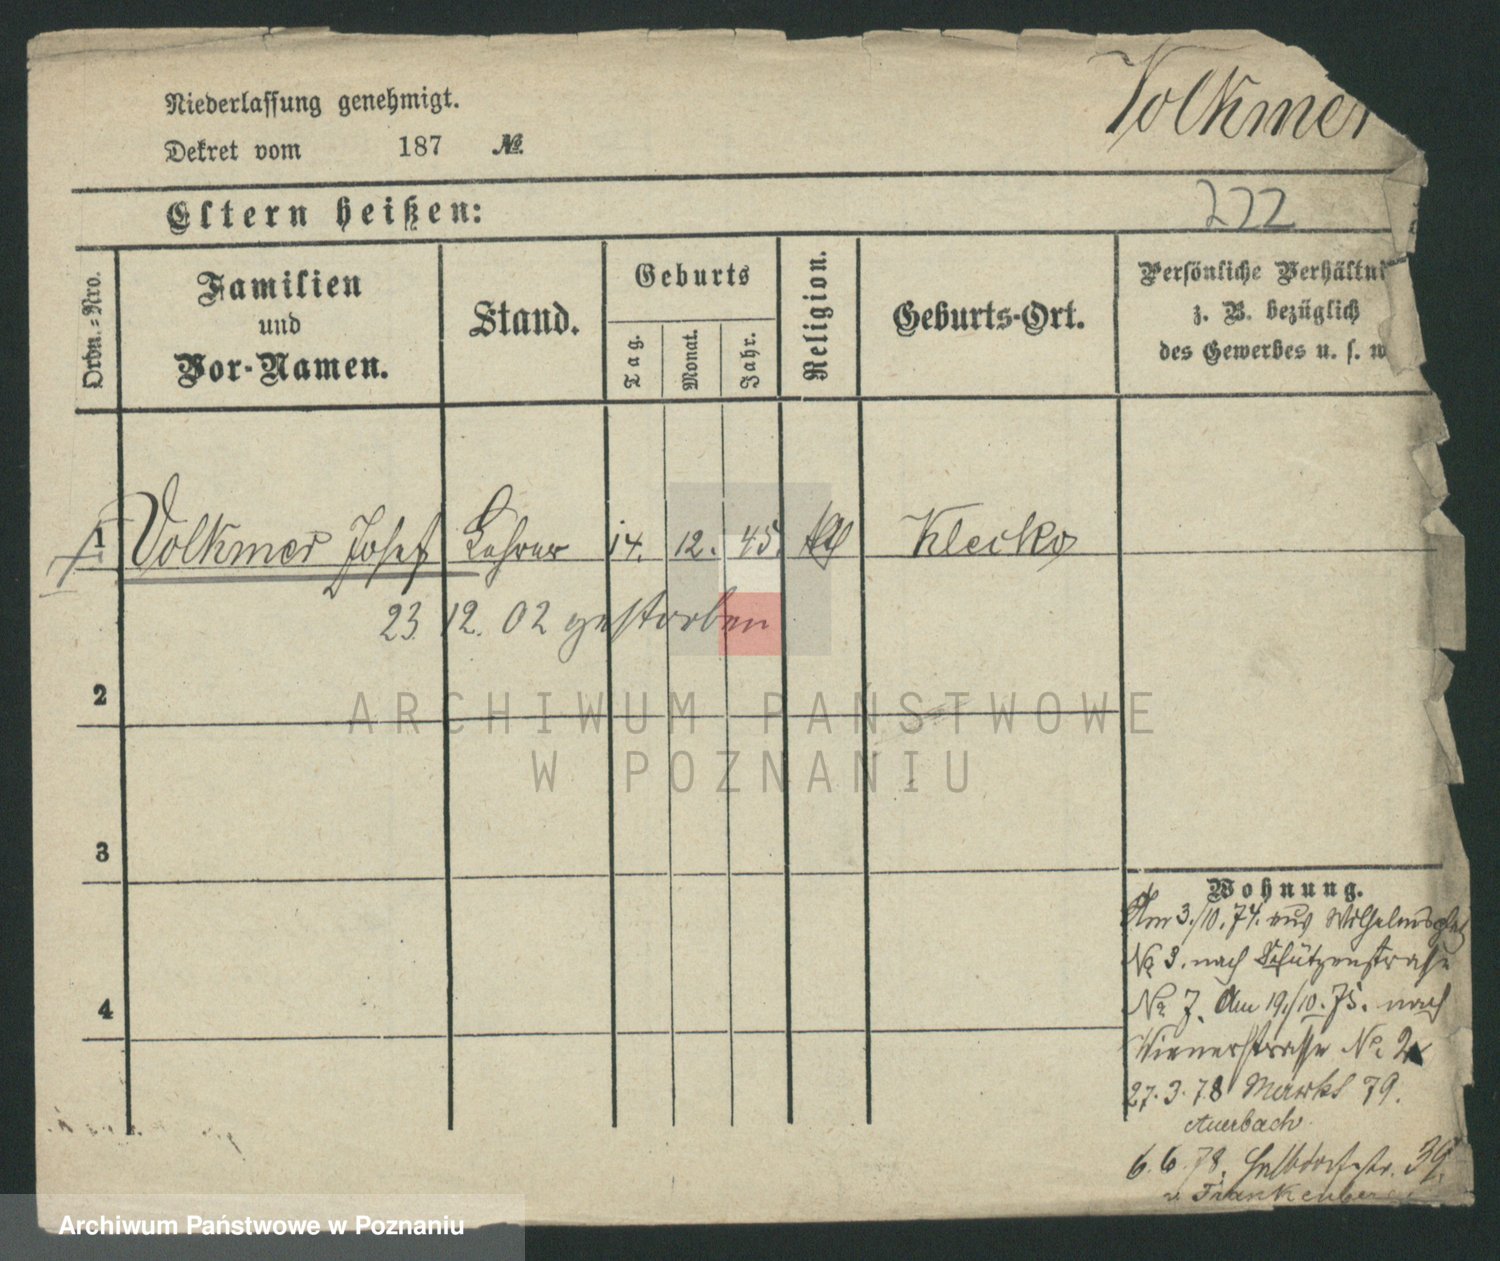 Volkmer
Niederlassung genehmigt.
Dekret vom 187 №.
Eltern heißen:
222
Ordn.-Nro.
Familien
und
Vor-Namen.
Stand.
Geburts
Tag.
Monat.
Jahr.
Religion.
Geburts-Ort.
Persönliche Verhältni
z. B. bezüglich
des Gewerbes u. s. w
1 Volkmer Josef Lehrer 14. 12. 45. Klecko
23 12. 02 gestorben
2
ARCHIWUM PAŃSTWOWE
W POZNANIU
3
4
Wohnung.
Am 3./10. 74. aus Wilhelmsplatz
No 3. nach Schützenstraße
No 7. Am 19./10. 75. nach
Wienerstrasse No 2
27. 3. 78 Markt 79.
Auerbach
6. 6. 78. Halbdorfstr. 39.
v. Frankenberg
Archiwum Państwowe w Poznaniu